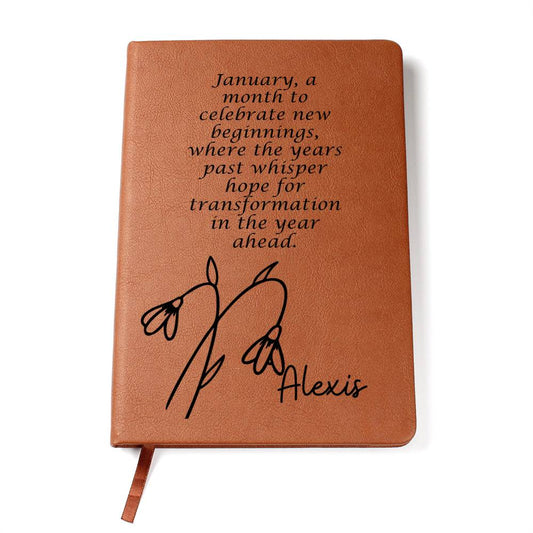 January, a
month to
celebrate new
beginnings,
where the years
past whisper
hope for
transformation
in the year
ahead.
Alexis